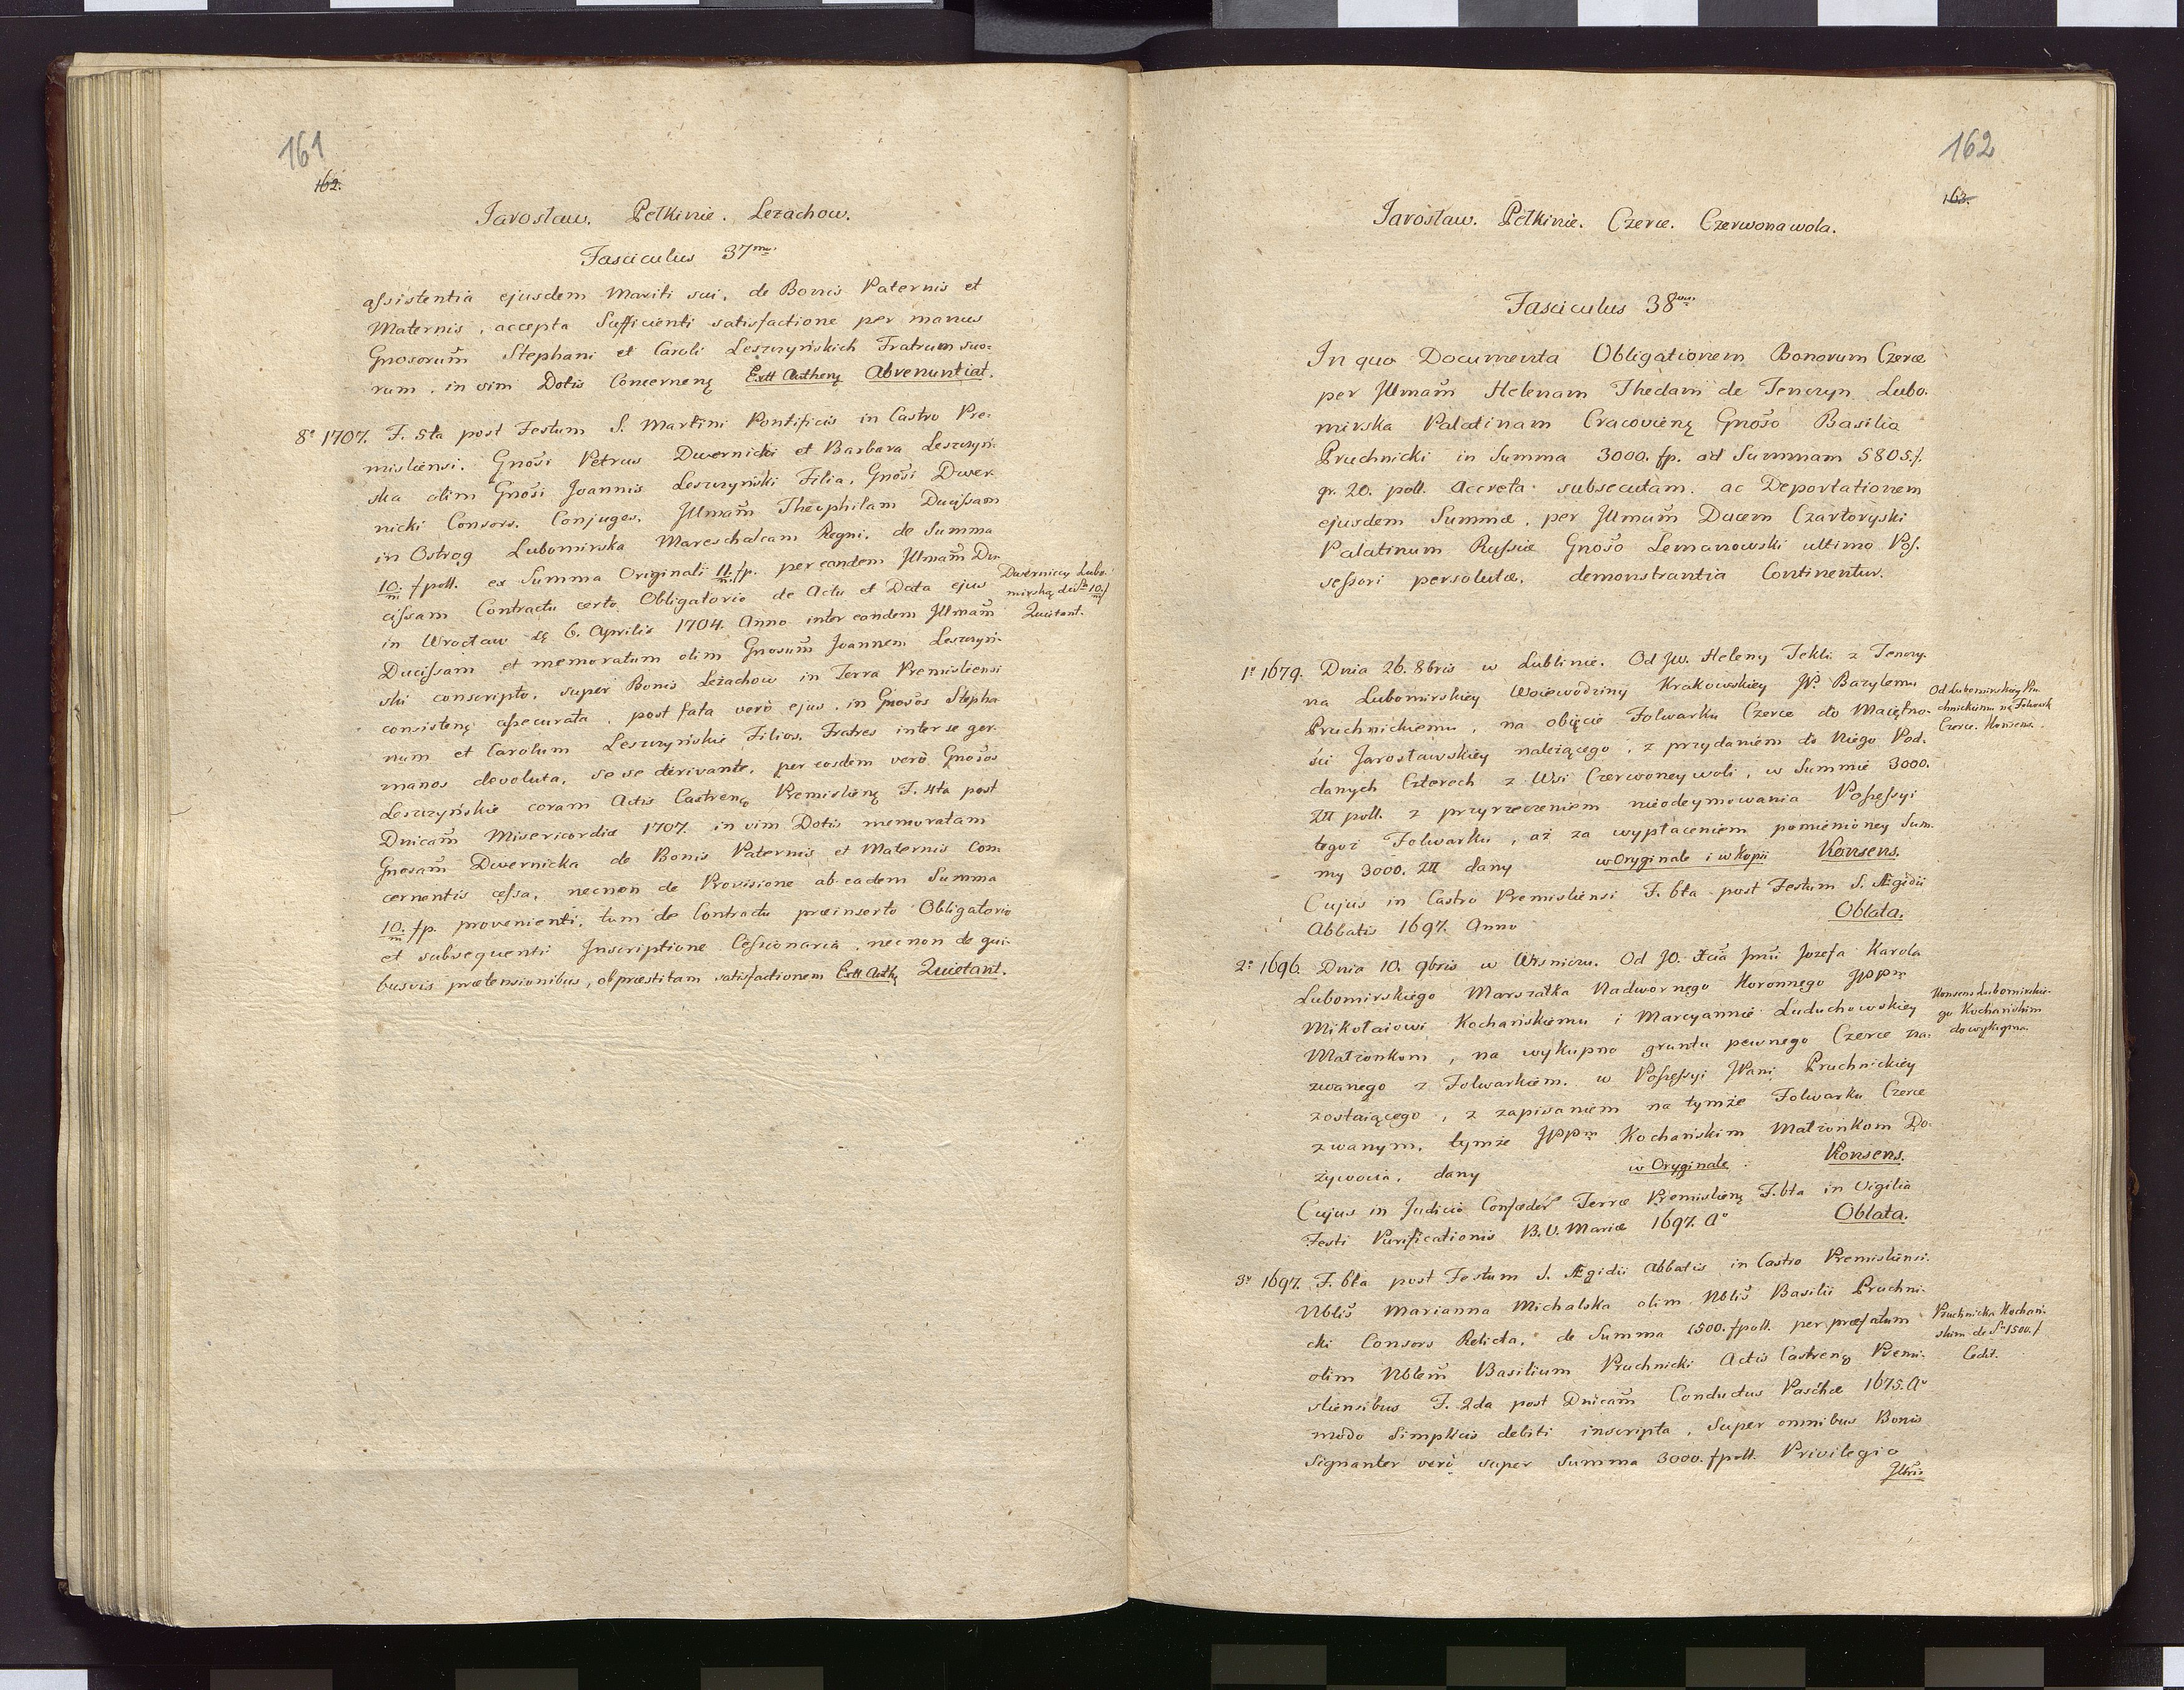 161
162.
Jarosław. Pełkinie. Leżachow.
Fasciculus 37mus.
assistentia ejusdem Mariti sui, de Bonis Paternis et
Maternis, accepta Sufficienti satisfactione per manus
Gnosorum̃ Stephani et Caroli Leszczyńskich Fratrum suo-
rum, in vim Dotis Concerneñ Extt Autheñ Abrenuntiat.
8º 1707. F. 5ta post Festum S. Martini Pontificis in Castro Pre-
misliensi. Gnosi Petrus Dwernicki et Barbara Leszczyń-
ska olim Gnosi Joannis Leszczyński Filia, Gnosi Dwer-
nicki Consors. Conjuges, Jllmam̃ Theophilam Ducissam
in Ostrog Lubomirska Mareschalcam Regni, de Summa
10./m fpoll. ex Summa Originali 11./m fp. per eandem Jllmam̃ Du-
cissam Contractu certo Obligatorio de Actu et Data ejus
in Wrocław de 6. Aprilis 1704. Anno inter eandem Jllmam̃
Ducissam et memoratum olim Gnosum̃ Joannem Leszczyń-
ski conscripto, super Bonis Leżachow in Terra Premisliensi
consisteñ assecurata, post fata verò ejus, in Gnosos Stepha-
num et Carolum Leszczyńskie Filios, Fratres inter se ger-
manos devoluta, se se derivante, per eosdem verò Gnosos
Leszczyńskie coram Actis Castreñ Premislieñ F. 4ta post
Dnicam̃ Misericordiæ 1707. in vim Dotis memoratam
Gnosam̃ Dwernicka de Bonis Paternis et Maternis Con-
cernentis cessa, necnon de Provisione ab eadem Summa
10./m fp. provenienti, tum de Contractu præinserto Obligatorio
et subsequenti Jnscriptione Cessionaria, necnon de qui-
busvis prætensionibus, ob præstitam satisfactionem Extt Autheñ Quietant.
Dwerniccy Lubo-
mirską de Sa 10./m f
Quietant.
162
163.
Jarosław. Pełkinie. Czerce. Czerwonawola.
Fasciculus 38vus.
In quo Documenta Obligationem Bonorum Czerce
per Jllmam̃ Helenam Theclam de Tenczyn Lubo-
mirska Palatinam Cracovieñ Gnoso Basilio
Pruchnicki in Summa 3000. fp. ad Summam 5805. f.
gr. 20. poll. Accreta subsecutam, ac Deportationem
ejusdem Summæ, per Jllmum̃ Ducem Czartoryski
Palatinum Russiæ Gnoso Lemanowski ultimo Pos-
sessori persolutæ, demonstrantia Continentur.
1º 1679. Dnia 26. 8bris w Lublinie. Od JW. Heleny Tekli z Tenczy-
na Lubomirskiey Woiewodziny Krakowskiey JP. Bazylemu
Pruchnickiemu, na obięcie Folwarku Czerce do Maiętno-
ści Jarosławskiey należącego, z przydaniem do Niego Pod-
danych Czterech z Wsi Czerwoney woli, w Summie 3000.
Złł poll. z przyrzeczeniem nieodeymowania Possessyi
tegoż Folwarku, aż za wypłaceniem pomienioney Sum-
my 3000. Złł dany w Oryginale i w Kopii Konsens.
Cujus in Castro Premisliensi F. 6ta post Festum S. Ægidii
Abbatis 1697. Anno Oblata.
Od Lubomirskiey Pru-
chnickiemu na Folwark
Czerce. Konsens.
2º 1696. Dnia 10. 9bris w Wisniczu. Od JO. Xcia Jmci Jozefa Karola
Lubomirskiego Marszałka Nadwornego Koronnego JPPm
Mikołaiowi Kochańskiemu i Maryannie Luduchowskiey
Małżonkom, na wykupno gruntu pewnego Czerce na-
zwanego z Folwarkiem, w Possessyi JPani Pruchnickiey
zostaiącego, z zapisaniem na tymże Folwarku Czerce
zwanym, tymże JPPm Kochańskim Małżonkom Do-
żywocia, dany w Oryginale. Konsens.
Cujus in Judicio Confœder Terræ Premislieñ F. 6ta in Vigilia
Festi Purificationis B.V. Mariæ 1697. Aº Oblata.
Konsens Lubomirskie-
go Kochańskim
do wykupna.
3º 1697. F. 6ta post Festum S. Ægidii Abbatis in Castro Premisliensi.
Nblis̃ Marianna Michalska olim Nblis̃ Basilii Pruchni-
cki Consors Relicta, de Summa 1500. fpoll. per præfatum
olim Nblem̃ Basilium Pruchnicki Actis Castreñ Premi-
sliensibus F. 2da post Dnicam̃ Conductus Paschæ 1675. Aº
modo Simplicis debiti inscripta, Super omnibus Bonis
Signanter verò super Summa 3000. fpoll. Privilegio
Jllris
Pruchnicka Kochań-
skim de Sa 1500. f
Cedit.